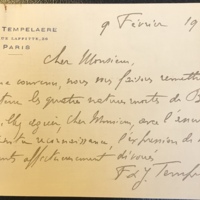 TEMPELAERE
LAFFITTE, 36
PARIS
9 Février 19
Cher Monsieur,
convenu, nous faisons remettre
les quatre natures mortes de B
agréer, cher Monsieur, avec l'
reconnaissance, l'expression de
affectueusement dévoués
F & J. Temp